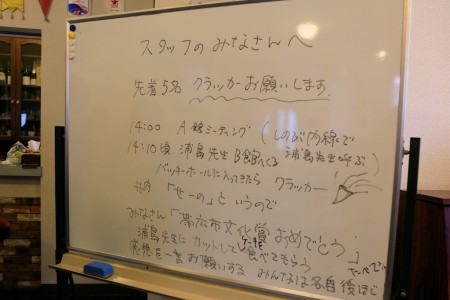 スタッフのみなさんへ
先着5名 クラッカーお願いします。
14:00 A館ミーティング (しのぶ内線で
14:10頃 浦島先生B館へくる 浦島先生呼ぶ)
バッチーホールに入ってきたら クラッカー
「せーの」というので
みなさん「帯広市文化賞おめでとう」
浦島先生にカットしてケーキを食べてもらう
お願いする みんなは各自後ほど